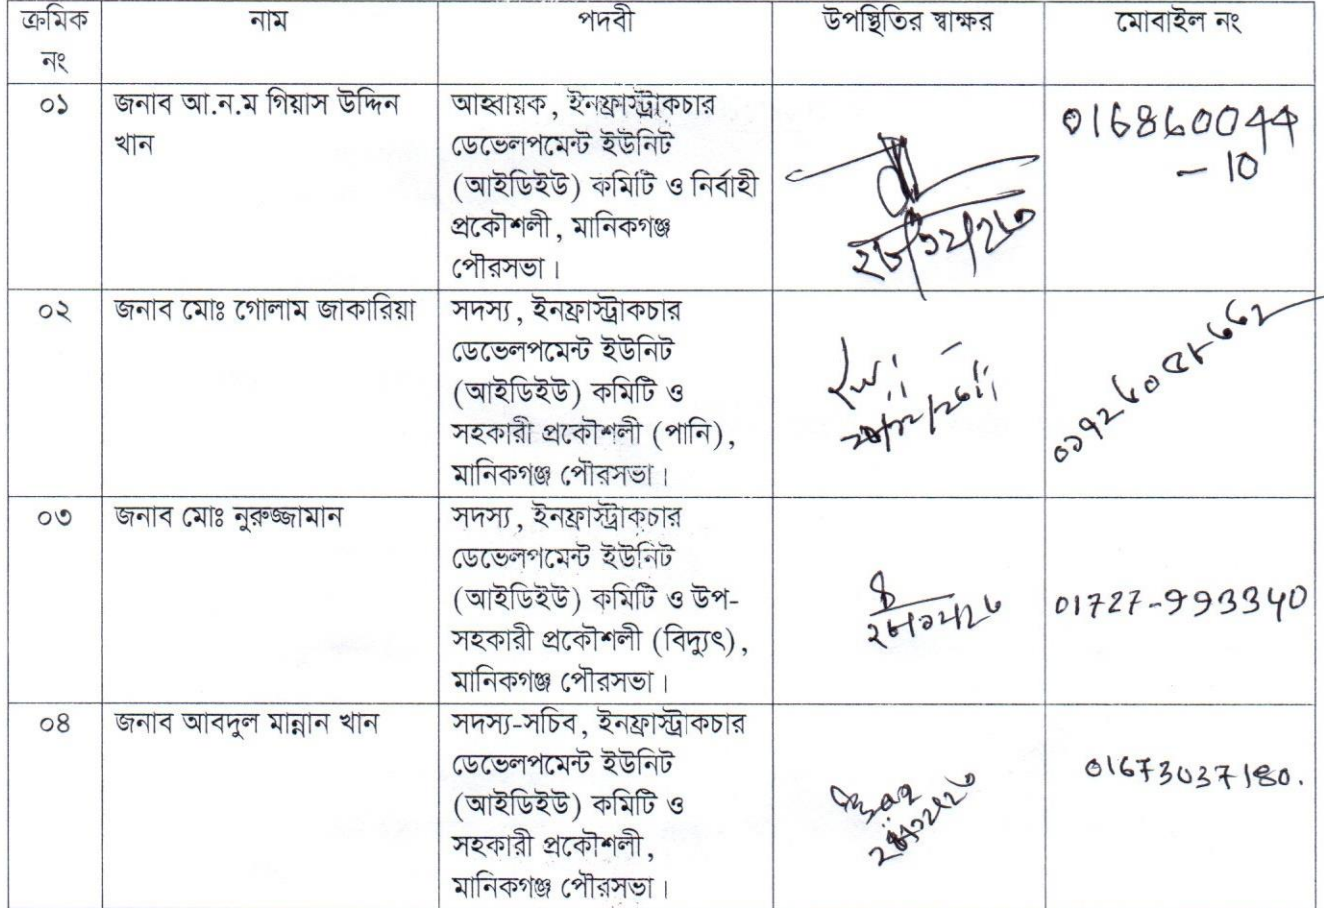 ক্রমিক নং | নাম | পদবী | উপস্থিতির স্বাক্ষর | মোবাইল নং
০১ | জনাব আ.ন.ম গিয়াস উদ্দিন
খান
আহ্বায়ক, ইনফ্রাস্ট্রাকচার
ডেভেলপমেন্ট ইউনিট
(আইডিইউ) কমিটি ও নির্বাহী
প্রকৌশলী, মানিকগঞ্জ
পৌরসভা।
016860044
- 10
০২ | জনাব মোঃ গোলাম জাকারিয়া
সদস্য, ইনফ্রাস্ট্রাকচার
ডেভেলপমেন্ট ইউনিট
(আইডিইউ) কমিটি ও
সহকারী প্রকৌশলী (পানি),
মানিকগঞ্জ পৌরসভা।
০৩ | জনাব মোঃ নুরুজ্জামান
সদস্য, ইনফ্রাস্ট্রাকচার
ডেভেলপমেন্ট ইউনিট
(আইডিইউ) কমিটি ও উপ-
সহকারী প্রকৌশলী (বিদ্যুৎ),
মানিকগঞ্জ পৌরসভা।
01727-993340
০৪ | জনাব আবদুল মান্নান খান
সদস্য-সচিব, ইনফ্রাস্ট্রাকচার
ডেভেলপমেন্ট ইউনিট
(আইডিইউ) কমিটি ও
সহকারী প্রকৌশলী,
মানিকগঞ্জ পৌরসভা।
01673037180.